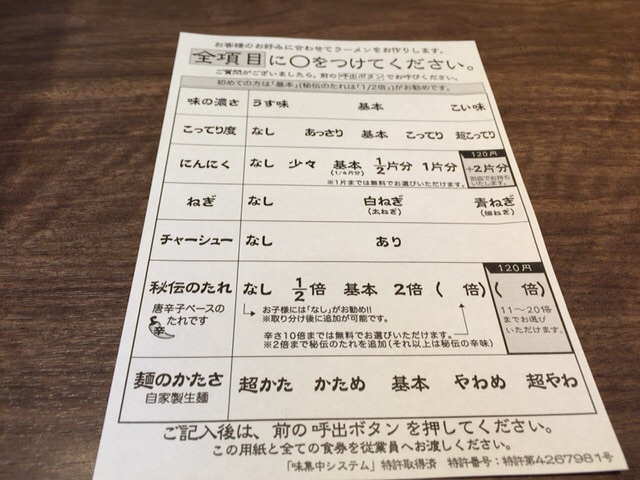 お客様のお好みに合わせてラーメンをお作りします。
全項目に○をつけてください。
ご質問がございましたら、前の呼出ボタンでお呼びください。
初めての方は「基本」(秘伝のたれは「1/2倍」)がお勧めです。
味の濃さ うす味 基本 こい味
こってり度 なし あっさり 基本 こってり 超こってり
120円
にんにく なし 少々 基本 1/2片分 1片分 +2片分
(1/4片分)
※1片までは無料でお選びいただけます。
別皿でお持ち
いたします。
ねぎ なし 白ねぎ 青ねぎ
(太ねぎ) (細ねぎ)
チャーシュー なし あり
120円
秘伝のたれ なし 1/2倍 基本 2倍 ( 倍) ( 倍)
唐辛子ベースの
たれです
辛
お子様には「なし」がお勧め!!
※取り分け後に追加が可能です。
辛さ10倍までは無料でお選びいただけます。
※2倍まで秘伝のたれを追加(それ以上は秘伝の辛味)
11〜20倍
までお選び
いただけます。
麺のかたさ 超かた かため 基本 やわめ 超やわ
自家製生麺
ご記入後は、前の呼出ボタンを押してください。
この用紙と全ての食券を従業員へお渡しください。
「味集中システム」特許取得済 特許番号:特許第4267981号